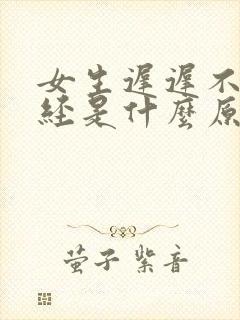 女生遲遲不
經是什麼原
萤子紫音